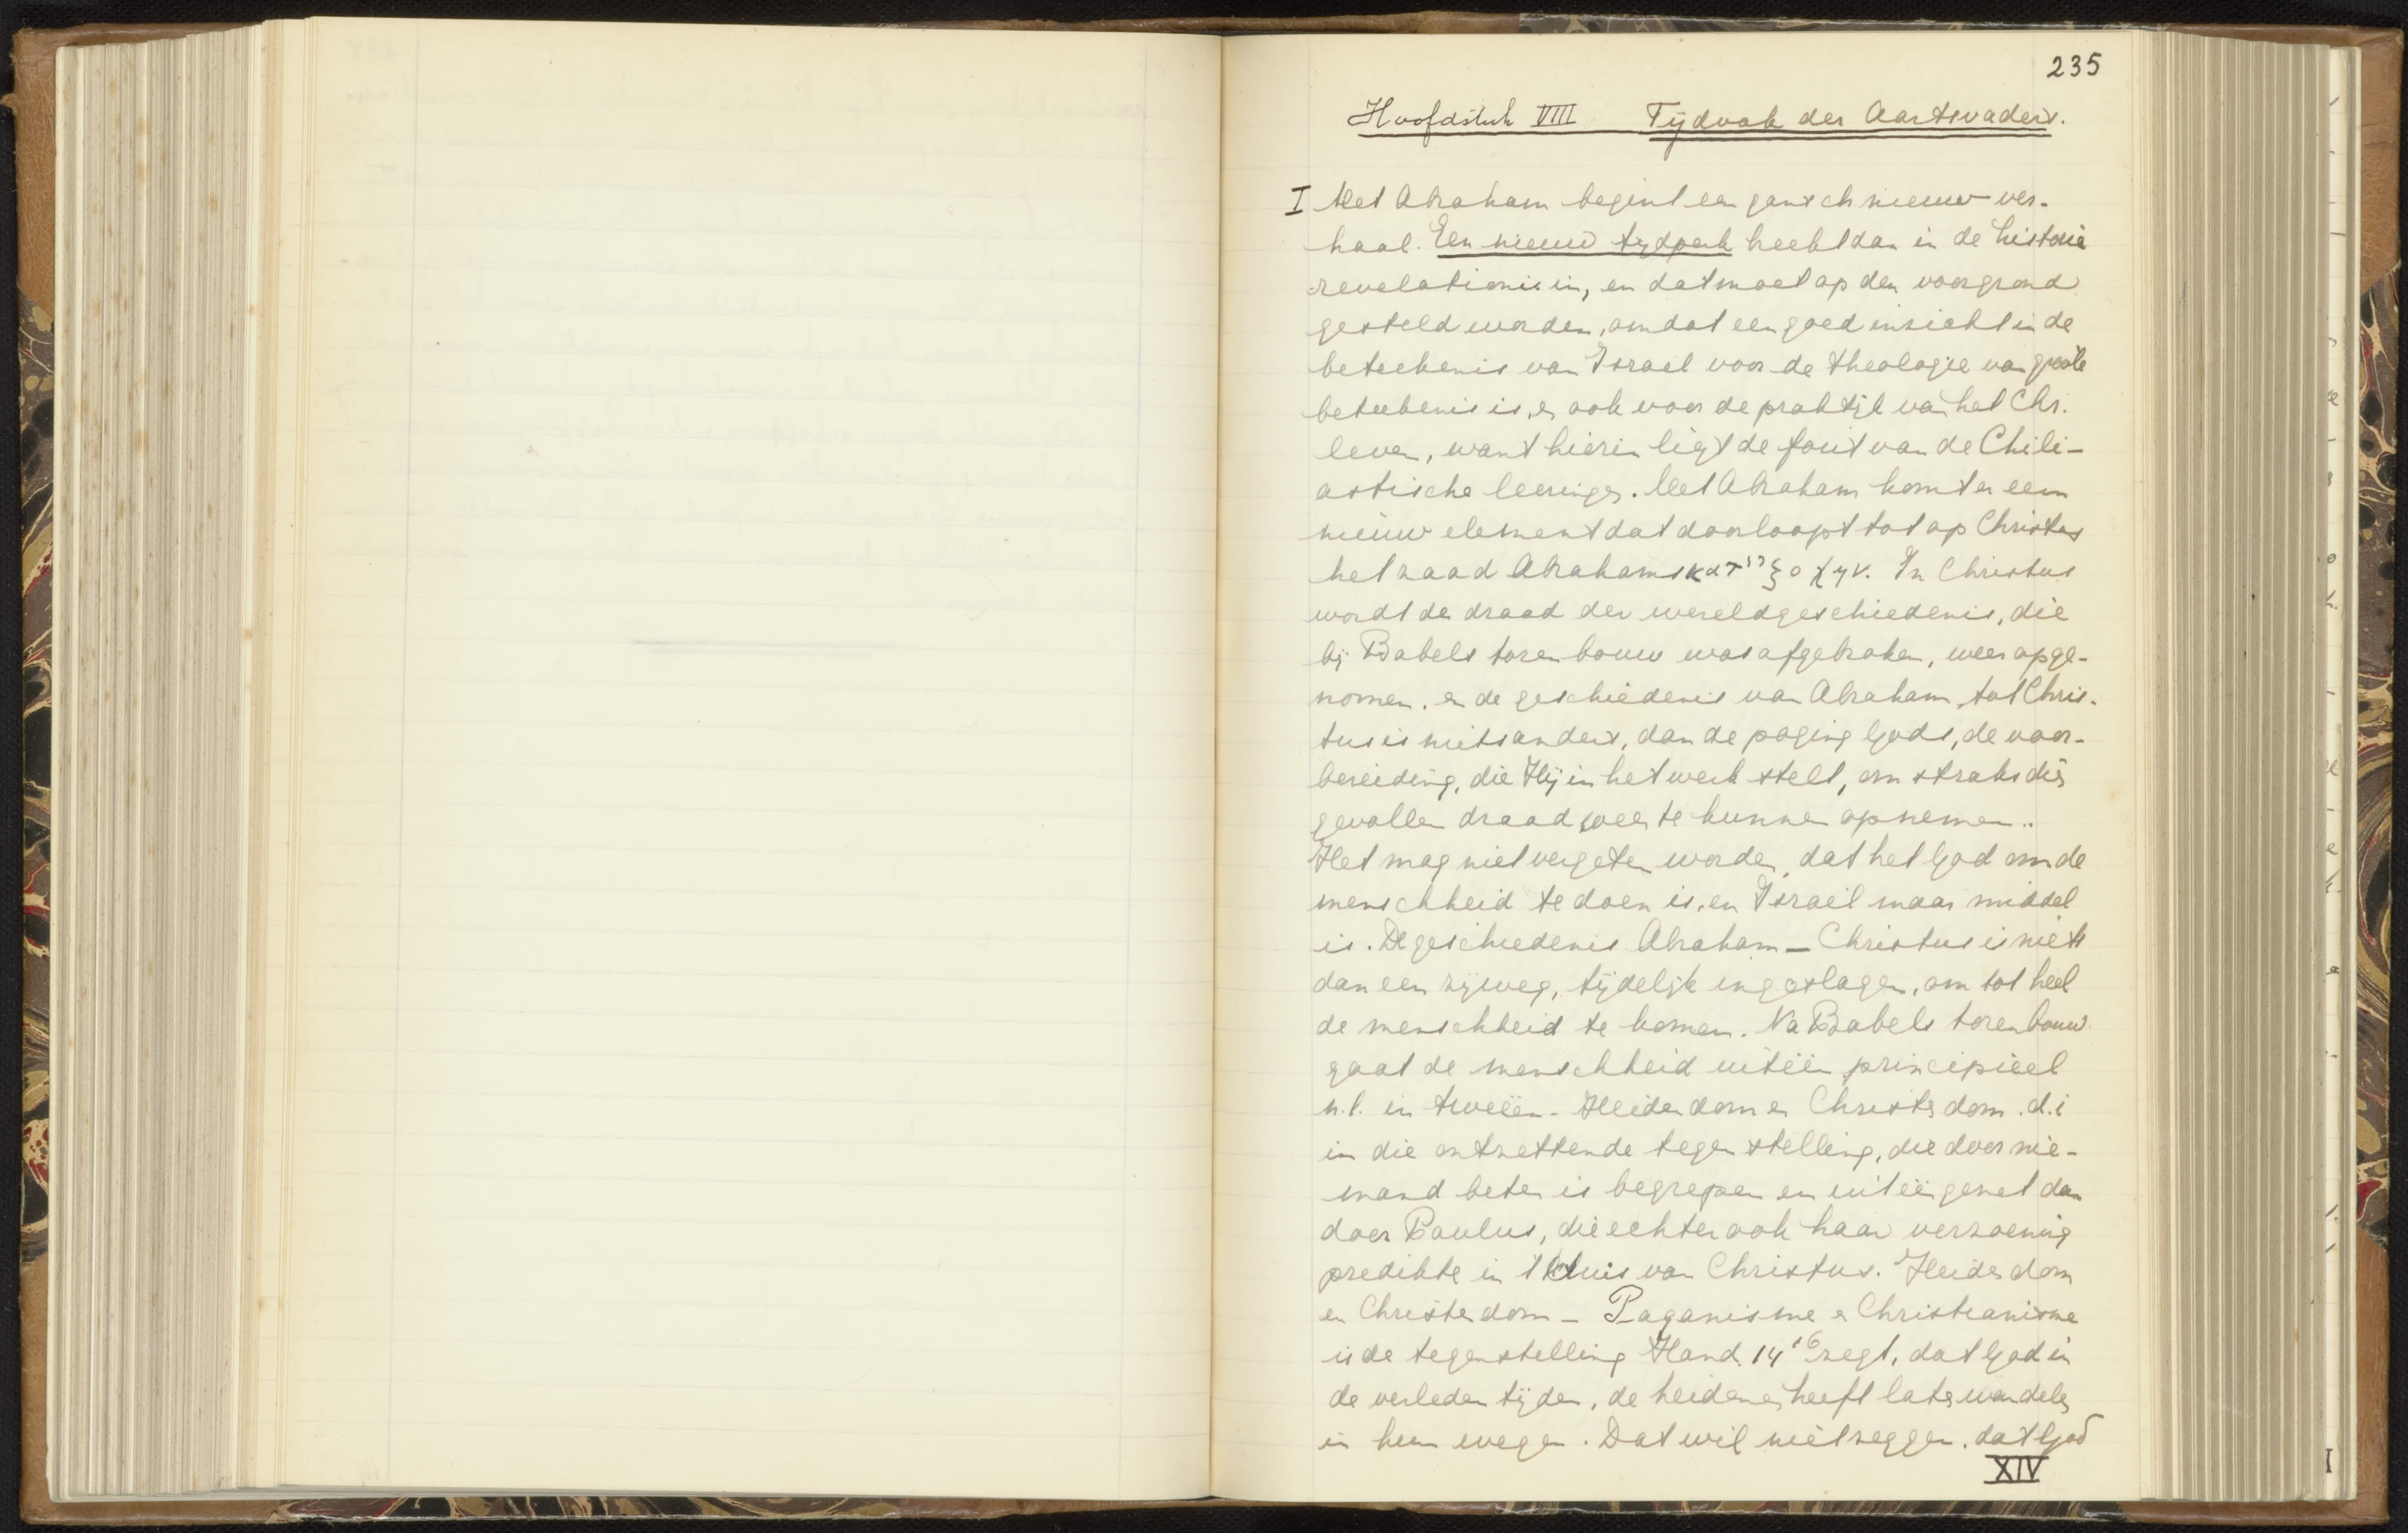 235
Hoofdstuk VIII Tijdvak der Aartsvaders.
I Met Abraham begint een gansch nieuw ver-
haal. Een nieuw tijdperk heeft dan in de historia
revelationis in, en dat moet op den voorgrond
gesteld worden, omdat een goed inzicht in de
beteekenis van Israel voor de theologie van groote
beteekenis is, en ook voor de praktijk van het Chr.
leven, want hierin ligt de fout van de Chili-
astische leeringen. Met Abraham komt er een
nieuw element dat doorloopt tot op Christus
het zaad Abrahams κατ' ἐξοχήν. In Christus
wordt de draad der wereldgeschiedenis, die
bij Babels torenbouw was afgebroken, weer opge-
nomen. en de geschiedenis van Abraham tot Chris-
tus is niets anders, dan de poging Gods, de voor-
bereiding, die Hij in het werk stelt, om straks dien
gevallen draad weer te kunnen opnemen..
Het mag niet vergeten worden, dat het God om de
menschheid te doen is, en Israël maar middel
is. De geschiedenis Abraham – Christus is niets
dan een zijweg, tijdelijk ingeslagen, om tot heel
de menschheid te komen. Na Babels torenbouw
gaat de menschheid uiteen principieel
n.l. in tweeën - Heidendom en Christendom. d.i
in die ontzettende tegenstelling, die door nie-
mand beter is begrepen en uiteengezet dan
door Paulus, die echter ook haar verzoening
predikte in 't kruis van Christus. Heidendom
en Christendom – Paganisme en Christianisme
is de tegenstelling Hand. 14¹⁶ zegt, dat God in
de verleden tijden, de heidenen heeft laten wandelen
in hun wegen. Dat wil niet zeggen. dat God
XIV